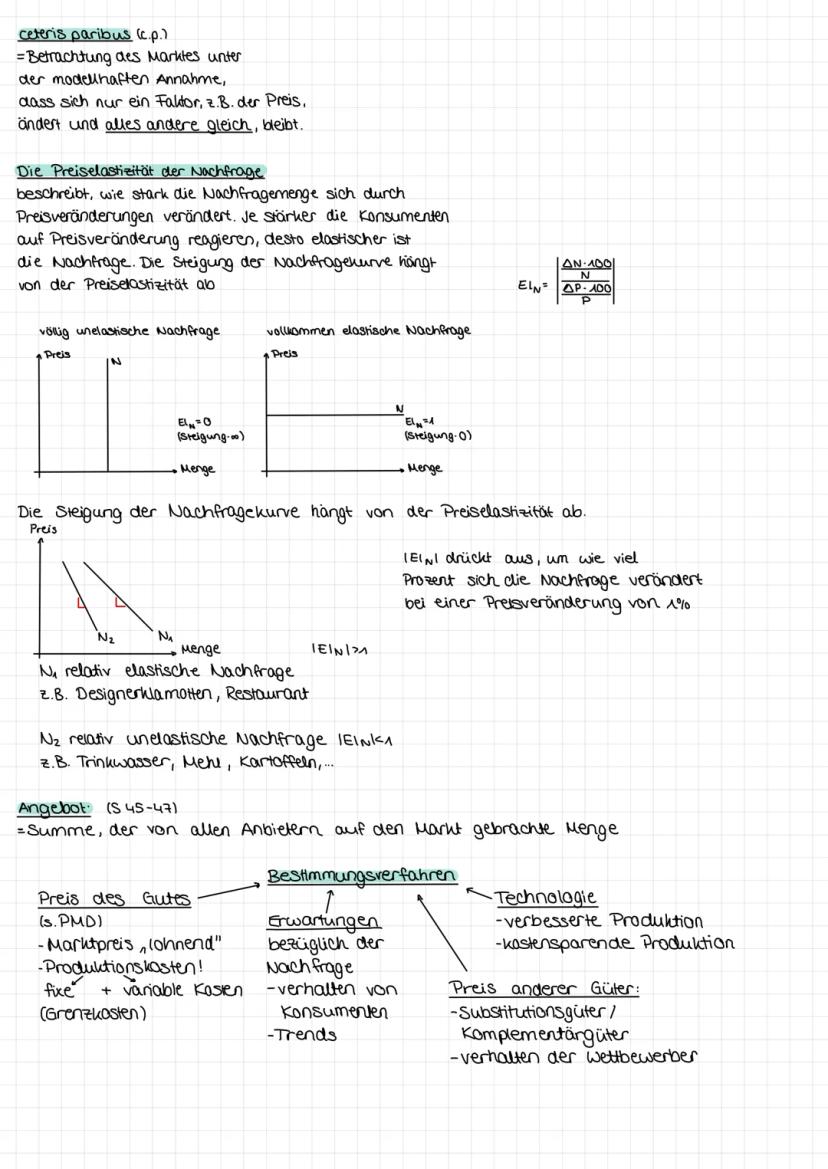 ceteris paribus (c.p.)
=Betrachtung des Marktes unter
der modellhaften Annahme,
dass sich nur ein Faktor, z.B. der Preis,
ändert und alles andere gleich, bleibt.
Die Preiselastizität der Nachfrage
beschreibt, wie stark die Nachfragemenge sich durch
Preisveränderungen verändert. Je stärker die Konsumenten
auf Preisveränderung reagieren, desto elastischer ist
die Nachfrage. Die Steigung der Nachfragekurve hängt
von der Preiselastizität ab
El_N = | (ΔN·100 / N) / (ΔP·100 / P) |
völlig unelastische Nachfrage
Preis
N
El_N=0
(Steigung-∞)
Menge
vollkommen elastische Nachfrage
Preis
N
El_N=1
(Steigung-0)
Menge
Die Steigung der Nachfragekurve hängt von der Preiselastizität ab.
Preis
N₂
N₁
Menge
|El_N| drückt aus, um wie viel
Prozent sich die Nachfrage verändert
bei einer Preisveränderung von 1%
|El_N|>1
N₁ relativ elastische Nachfrage
z.B. Designerklamotten, Restaurant
N₂ relativ unelastische Nachfrage |El_N|<1
z.B. Trinkwasser, Mehl, Kartoffeln,...
Angebot: (S 45-47)
=Summe, der von allen Anbietern auf den Markt gebrachte Menge
Bestimmungsverfahren
Preis des Gutes
(s.PMD)
-Marktpreis „lohnend"
-Produktionskosten!
fixe + variable Kosten
(Grenzkosten)
Erwartungen
bezüglich der
Nachfrage
-verhalten von
Konsumenten
-Trends
Technologie
-verbesserte Produktion
-kostensparende Produktion
Preis anderer Güter:
-Substitutionsgüter/
Komplementärgüter
-verhalten der Wettbewerber